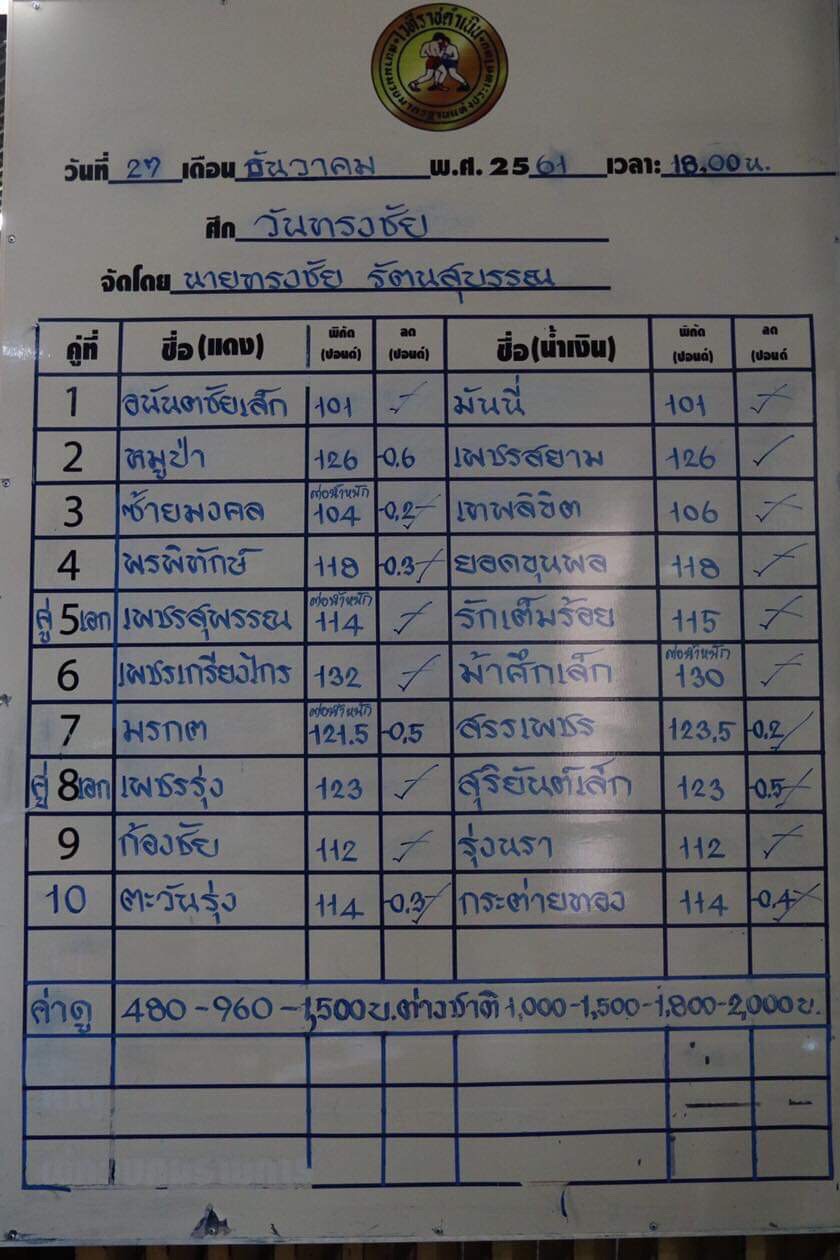 เวทีราชดำเนิน
วันที่ 27 เดือน ธันวาคม พ.ศ. 2561 เวลา: 18.00 น.
ศึก วันทรงชัย
จัดโดย นายทรงชัย รัตนสุบรรณ
คู่ที่ ชื่อ (แดง) พิกัด (ปอนด์) ลด (ปอนด์) ชื่อ (น้ำเงิน) พิกัด (ปอนด์) ลด (ปอนด์
1 อนันตชัยเล็ก 101 มันนี่ 101
2 หมูป่า 126 -0.6 เพชรสยาม 126 ✓
3 ซ้ายมงคล ต่อน้ำหนัก 104 -0.2 เทพลิขิต 106
4 พรพิทักษ์ 118 -0.3 ยอดขุนพล 118
คู่ 5 เอก เพชรสุพรรณ ต่อน้ำหนัก 114 รักเต็มร้อย 115
6 เพชรเกรียงไกร 132 ม้าศึกเล็ก ต่อน้ำหนัก 130
7 มรกต ต่อน้ำหนัก 121.5 -0.5 สรรเพชร 123.5 -0.2
คู่ 8 เอก เพชรรุ่ง 123 สุริยันต์เล็ก 123 -0.5
9 ก้องชัย 112 รุ่งนรา 112
10 ตะวันรุ่ง 114 -0.3 กระต่ายทอง 114 -0.4
ค่าดู 480-960-1,500 บ. ต่างชาติ 1,000-1,500-1,800-2,000 บ.